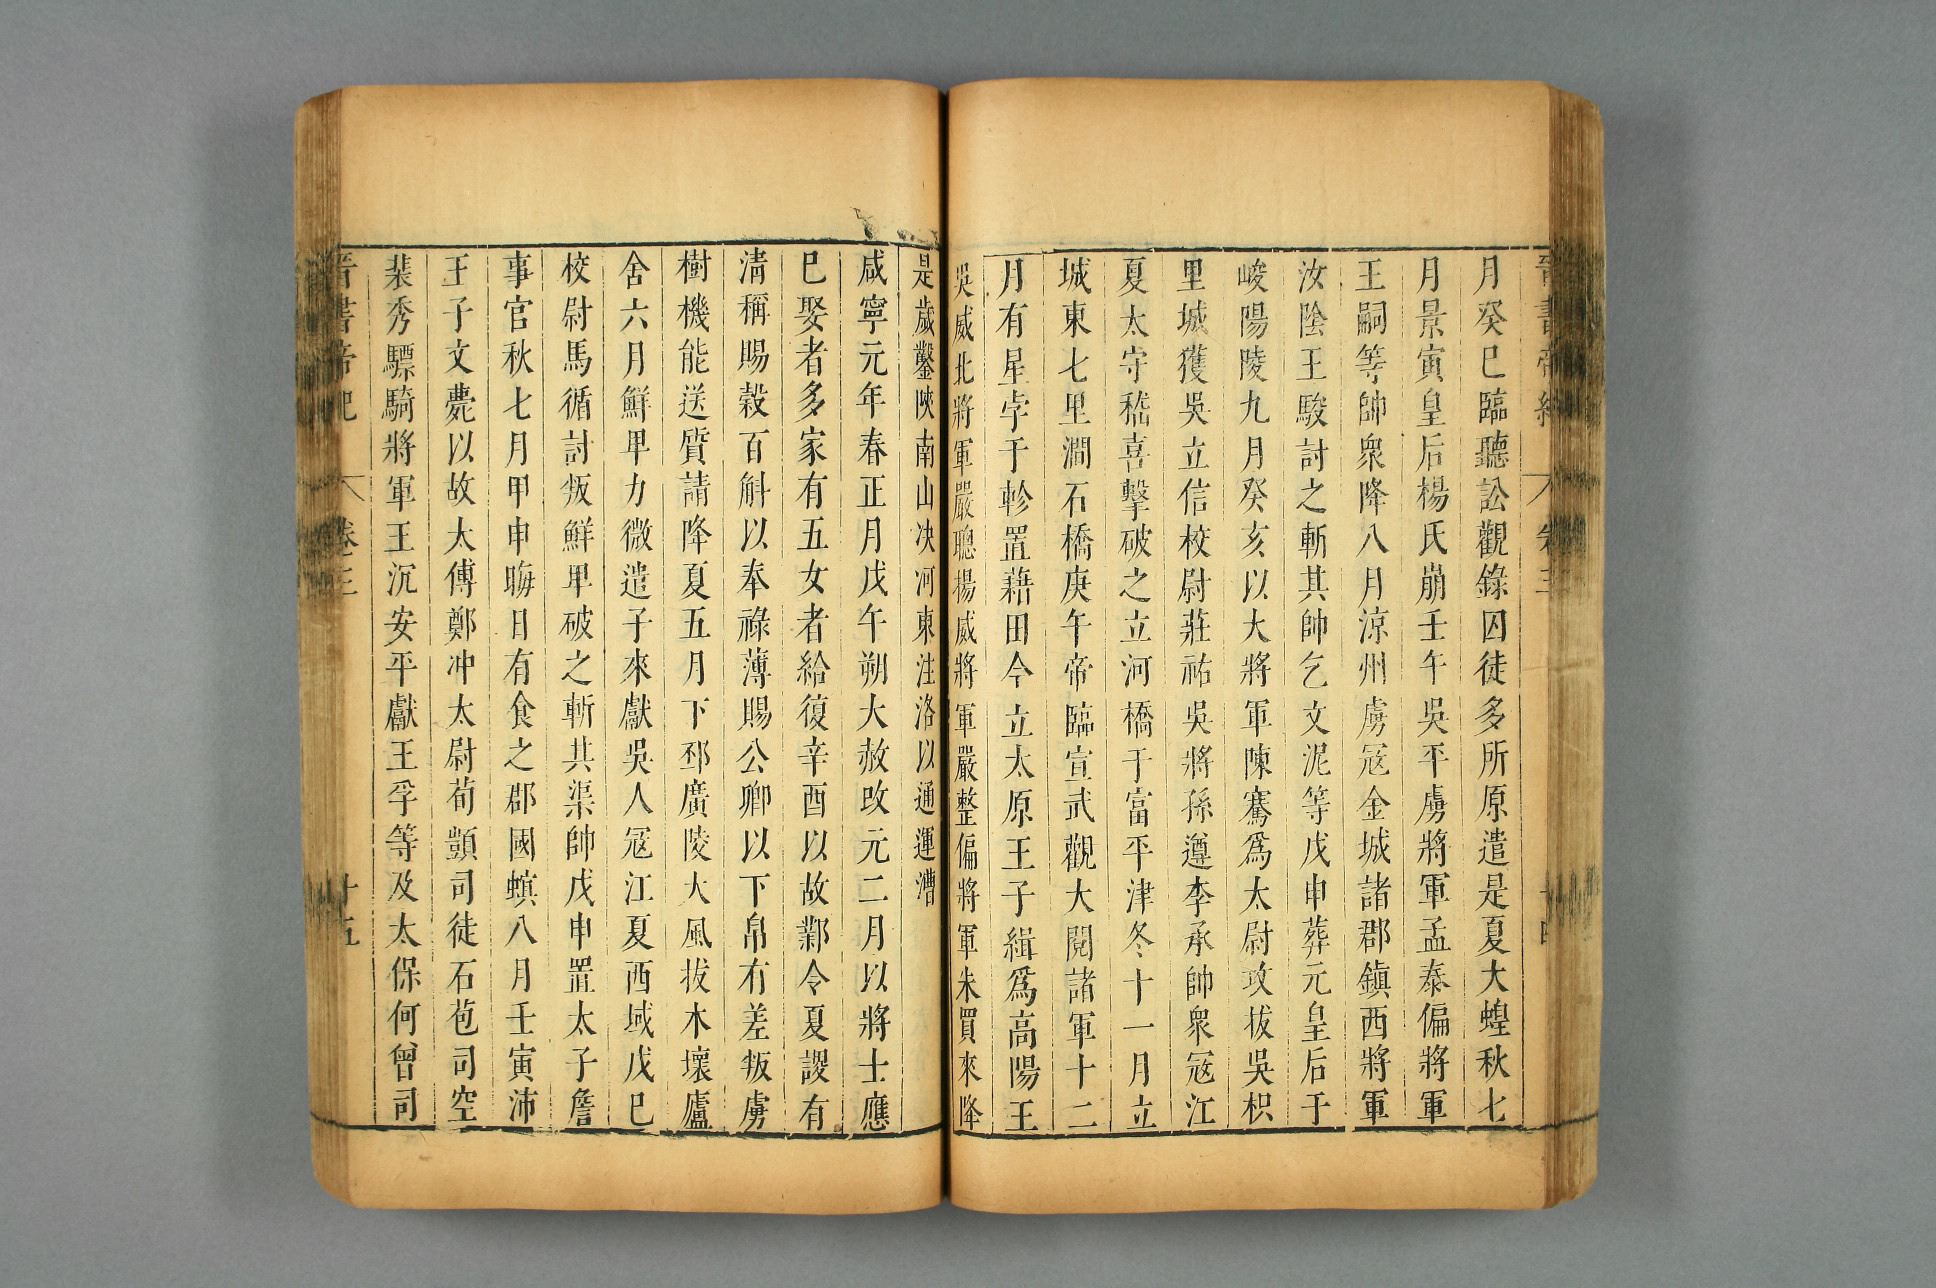 月癸巳臨聽訟觀錄囚徒多所原遣是夏大蝗秋七
月景寅皇后楊氏崩壬午吳平虜將軍孟泰偏將軍
王嗣等帥衆降八月涼州虜冦金城諸郡鎮西將軍
汝陰王駿討之斬其帥乞文泥等戊申葬元皇后于
峻陽陵九月癸亥以大將軍陳騫爲太尉攻拔吳枳
里城獲吳立信校尉莊祐吳將孫遵李承帥衆冦江
夏太守嵇喜擊破之立河橋于富平津冬十一月立
城東七里澗石橋庚午帝臨宣武觀大閱諸軍十二
月有星孛于軫置藉田令立太原王子緝爲高陽王
吳威北將軍嚴聰揚威將軍嚴整偏將軍朱買來降
是歲鑿陝南山決河東注洛以通運漕
咸寧元年春正月戊午朔大赦改元二月以將士應
巳娶者多家有五女者給復辛酉以故鄴令夏謖有
淸稱賜穀百斛以奉祿薄賜公卿以下帛有差叛虜
樹機能送質請降夏五月下邳廣陵大風拔木壞廬
舍六月鮮卑力微遣子來獻吳人冦江夏西域戊巳
校尉馬循討叛鮮卑破之斬其渠帥戊申置太子詹
事官秋七月甲申晦日有食之郡國螟八月壬寅沛
王子文薨以故太傅鄭沖太尉荀顗司徒石苞司空
裴秀驃騎將軍王沉安平獻王孚等及太保何曾司
晉書帝紀 卷三 十五